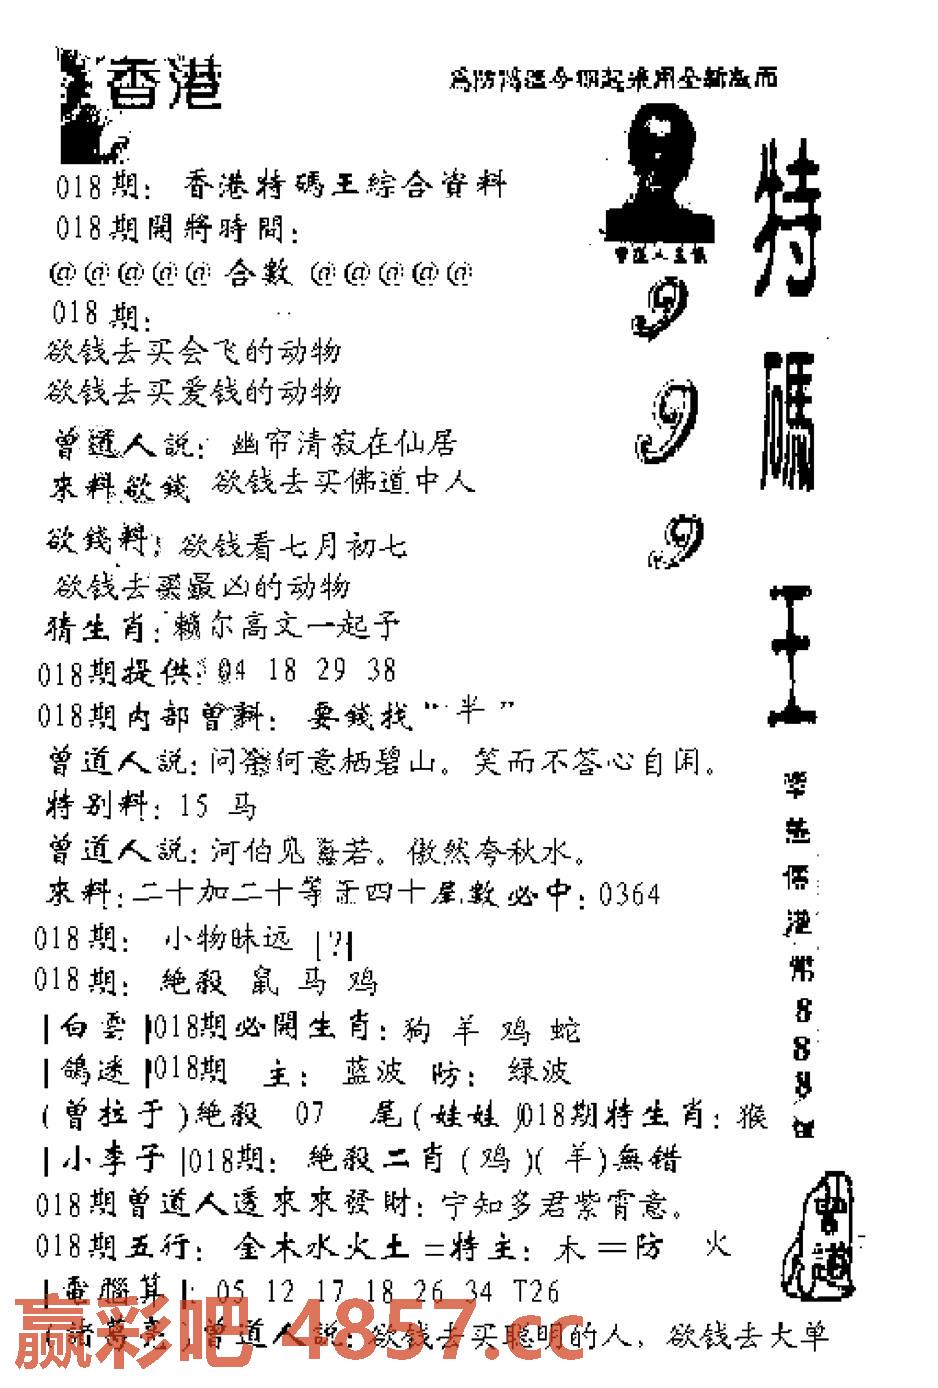 香港
特碼王
999
018期: 香港特碼王綜合資料
018期開將時間:
@@@@@合數@@@@@
018期:
欲钱去买会飞的动物
欲钱去买爱钱的动物
曾道人説: 幽帘清寂在仙居
來料欲錢 欲钱去买佛道中人
欲錢料: 欲钱看七月初七
欲钱去买最凶的动物
猜生肖: 尔高文一起予
018期提供: 04 18 29 38
018期内部曾料: 要錢找“半”
曾道人説: 问 何意栖碧山。笑而不答心自闲。
特别料: 15 马
曾道人説: 河伯见海若。傲然夸秋水。
來料: 二十加二十等 四十尾數必中: 0364
018期: 小物昧远 |?|
018期: 絶殺 鼠 马 鸡
|白雲|018期必開生肖: 狗 羊 鸡 蛇
|鴿迷|018期 主: 蓝波 防: 绿波
(曾拉于)絶殺 07 尾(娃娃)018期特生肖: 猴
|小李子|018期: 絶殺二肖(鸡)(羊)無错
018期曾道人透來來發財: 宁知多君紫霄意。
018期五行: 金木水火土=特主: 木=防 火
|電腦算|: 05 12 17 18 26 34 T26
(諸葛亮)曾道人説: 欲钱去买聪明的人, 欲钱去大单
赢彩吧 4857.cc